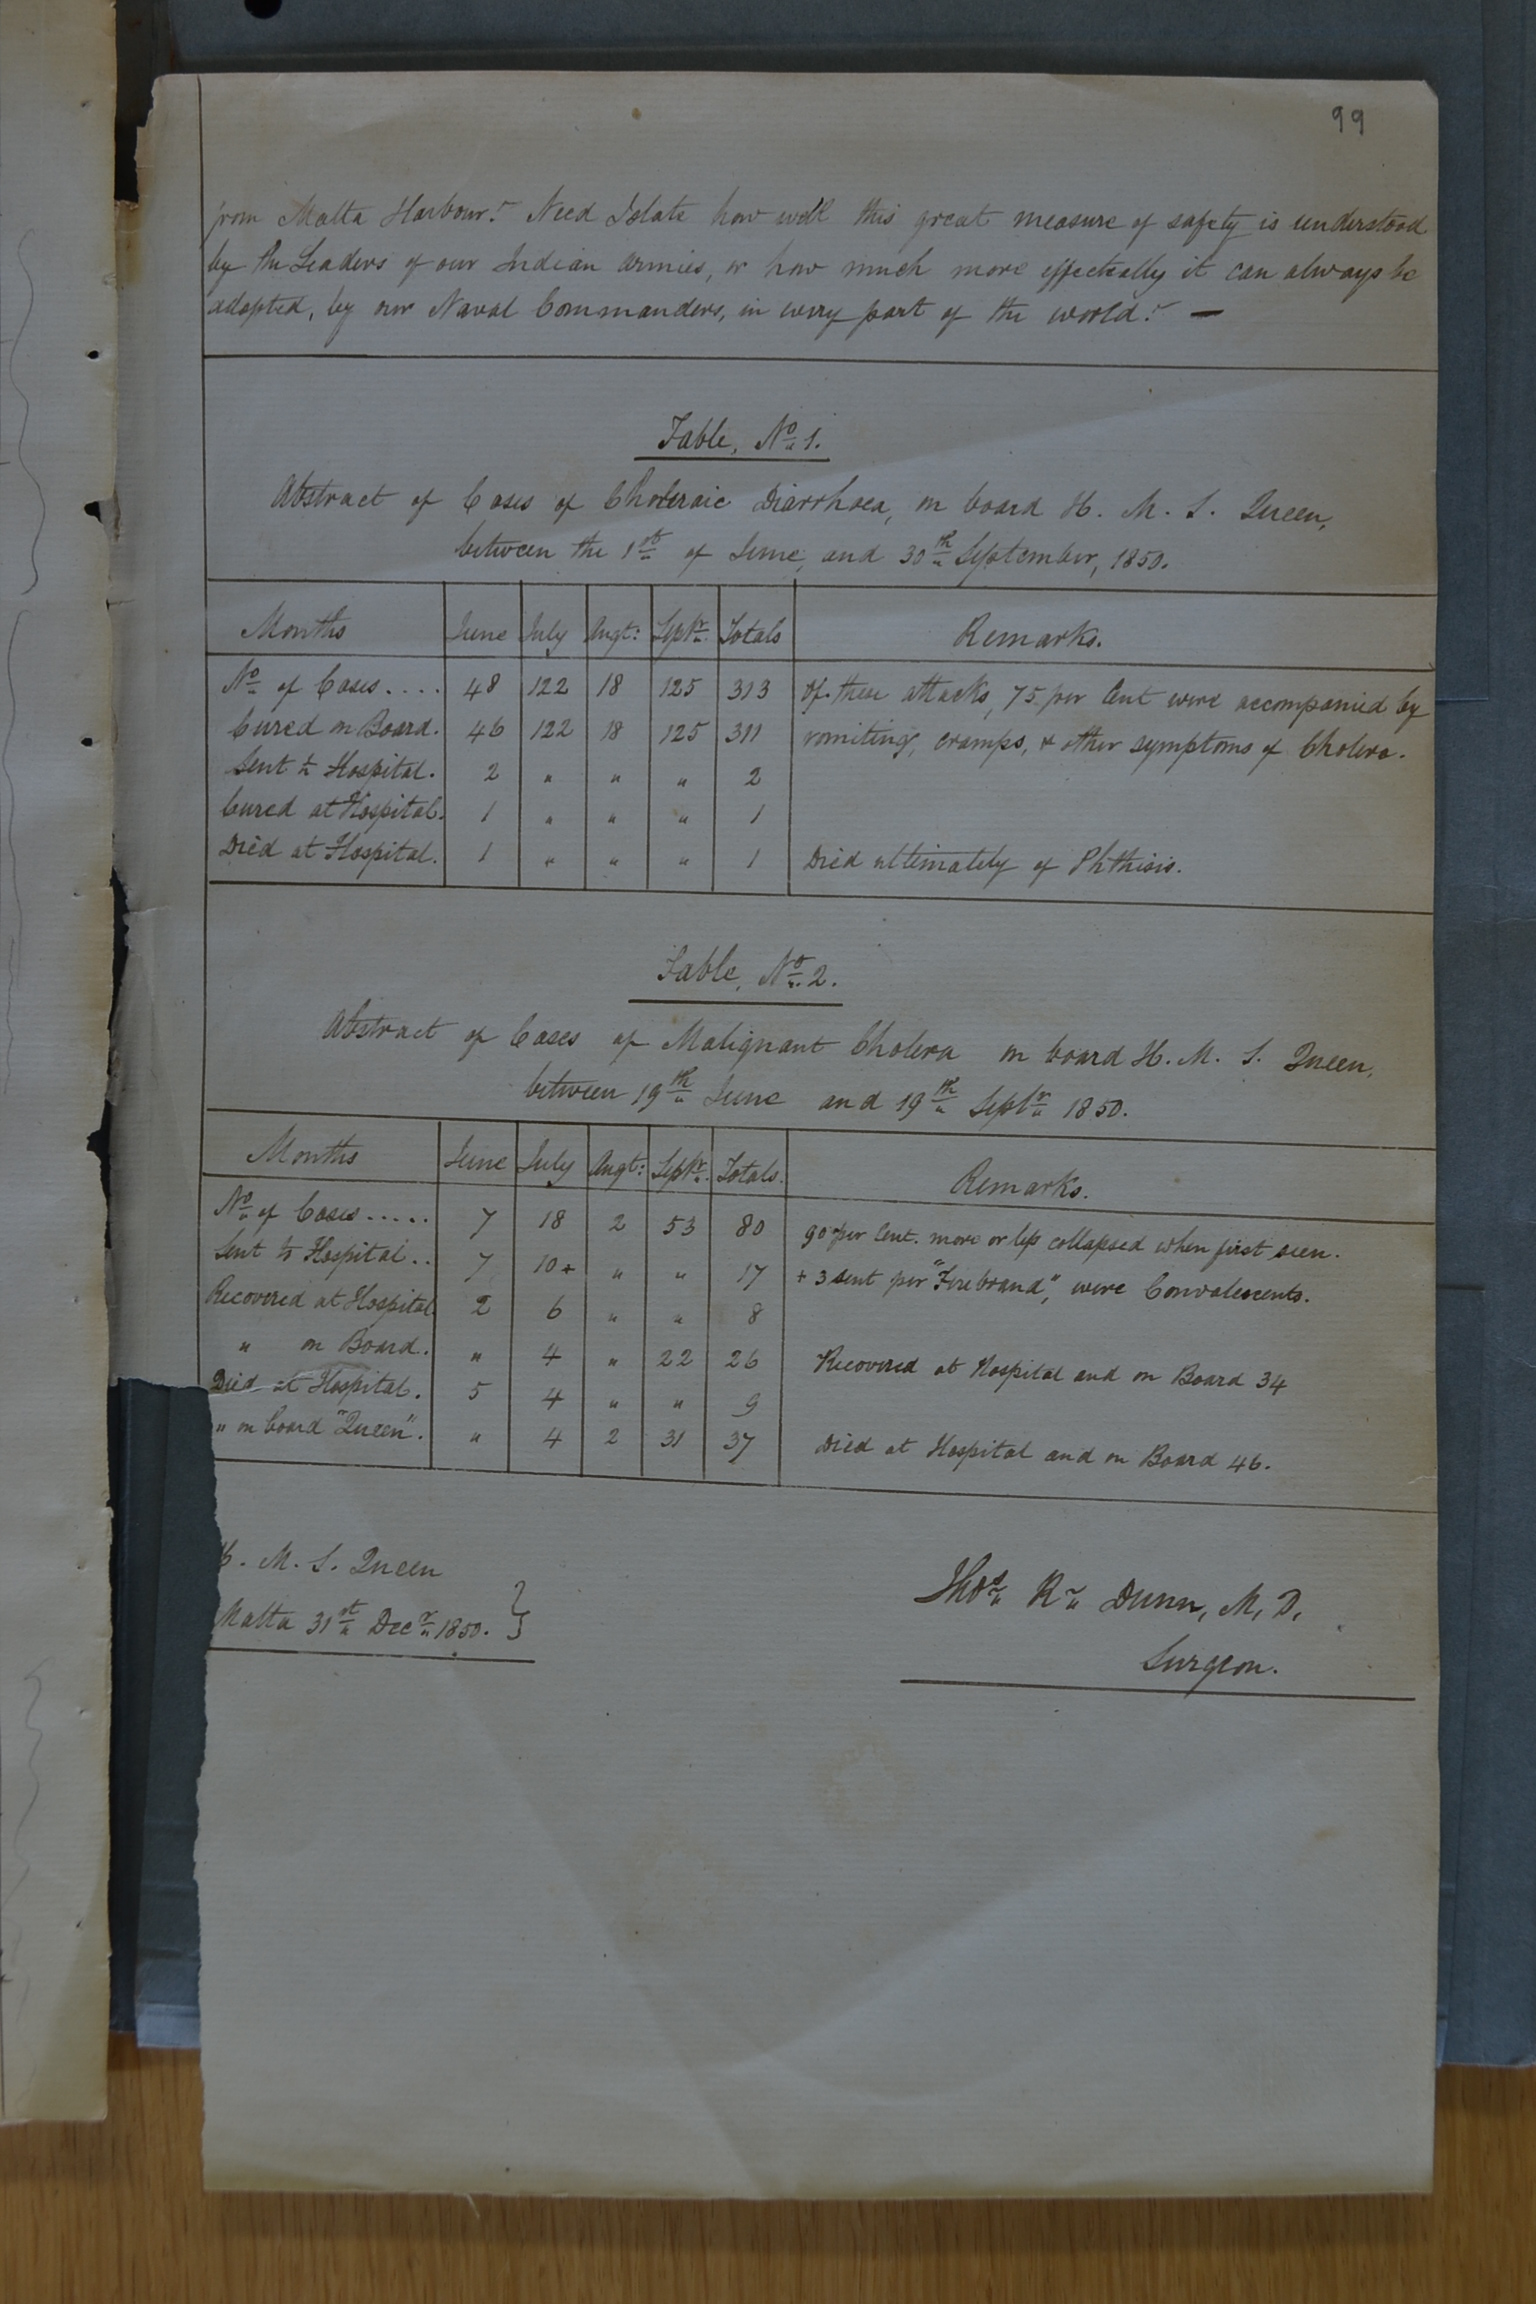 99
from Malta Harbour? Need I state how well this great measure of safety is understood
by the Leaders of our Indian Armies, or how much more effectually it can always be
adopted, by our Naval Commanders, in every part of the world? —
Table, No. 1.
Abstract of Cases of Choleraic Diarrhoea, on board H. M. S. Queen,
between the 1st of June, and 30th September, 1850.
Months June July Augt: Septr. Totals Remarks.
No. of Cases.... 48 122 18 125 313 Of these attacks, 75 per Cent were accompanied by
Cured on Board. 46 122 18 125 311 vomiting, cramps, & other symptoms of Cholera.
Sent to Hospital. 2 " " " 2
Cured at Hospital. 1 " " " 1
Died at Hospital. 1 " " " 1 Died ultimately of Phthisis.
Table, No. 2.
Abstract of Cases of Malignant Cholera on board H. M. S. Queen,
between 19th June and 19th Septr 1850.
Months June July Augt: Septr. Totals. Remarks.
No. of Cases..... 7 18 2 53 80 90 per Cent. more or less collapsed when first seen.
Sent to Hospital.. 7 10+ " " 17 + 3 sent per "Firebrand", were Convalescents.
Recovered at Hospital 2 6 " " 8
" on Board. " 4 " 22 26 Recovered at Hospital and on Board 34
Died at Hospital. 5 4 " " 9
" on board "Queen". " 4 2 31 37 Died at Hospital and on Board 46.
H. M. S. Queen
Malta 31st Decr 1850. }
Thos. Rr. Dunn, M, D,
Surgeon.